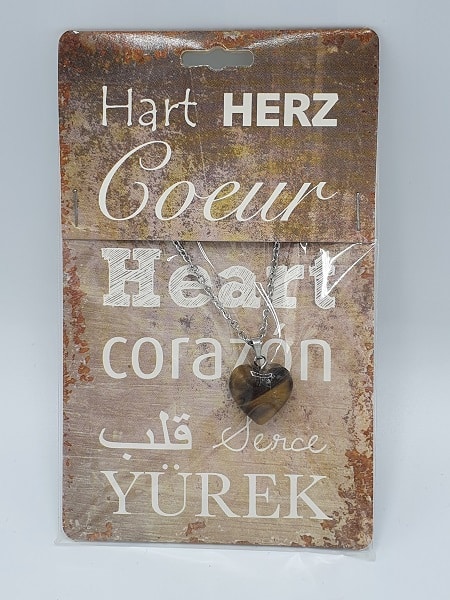 Hart HERZ
Coeur
Heart
corazón
قلب Serce
YÜREK